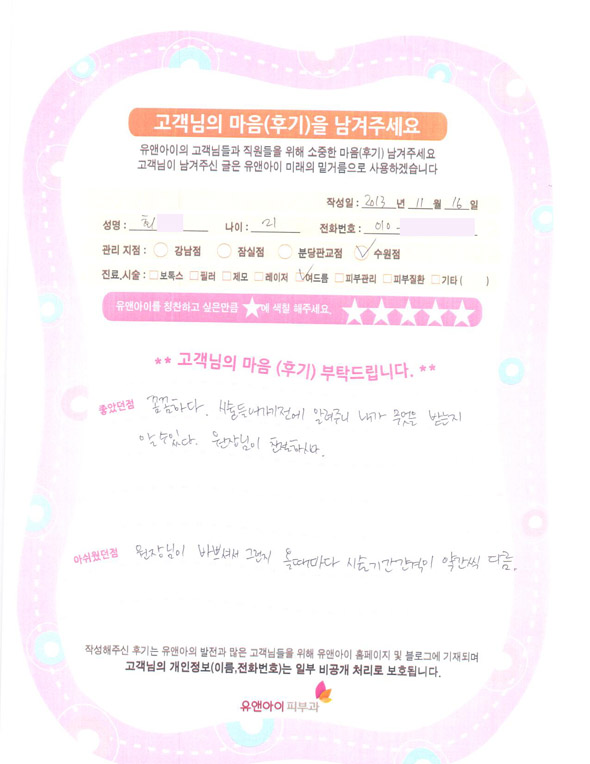 고객님의 마음(후기)을 남겨주세요
유앤아이의 고객님들과 직원들을 위해 소중한 마음(후기) 남겨주세요
고객님이 남겨주신 글은 유앤아이 미래의 밑거름으로 사용하겠습니다
작성일 : 2013 년 11 월 16 일
성명 : 최 나이 : 21 전화번호 : 010-
관리 지점 : 강남점 잠실점 분당판교점 수원점
진료,시술 : 보톡스 필러 제모 레이저 여드름 피부관리 피부질환 기타 ( )
유앤아이를 칭찬하고 싶은만큼 ★에 색칠 해주세요. ★★★★★
** 고객님의 마음 (후기) 부탁드립니다. **
좋았던점 꼼꼼하다. 시술들어가기전에 알려주니 내가 무엇을 받는지
알 수 있다. 원장님이 친절하시다.
아쉬웠던점 원장님이 바쁘셔서 그런지 올때마다 시술기간간격이 약간씩 다름.
작성해주신 후기는 유앤아의 발전과 많은 고객님들을 위해 유앤아이 홈페이지 및 블로그에 기재되며
고객님의 개인정보(이름,전화번호)는 일부 비공개 처리로 보호됩니다.
유앤아이 피부과